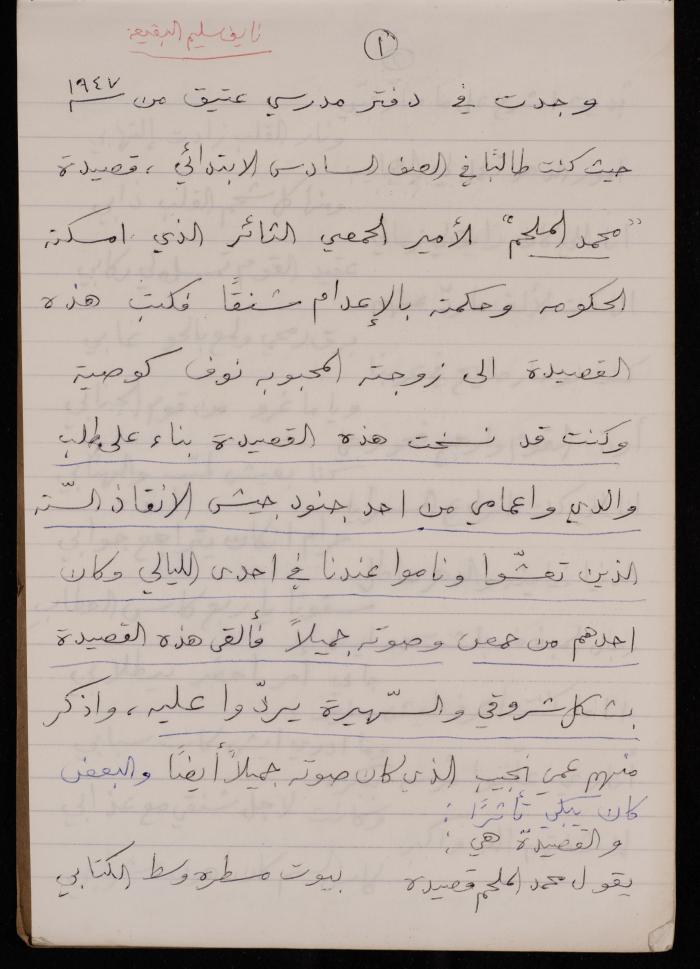 نايف سليم البقيعة
١
وجدت في دفتر مدرسي عتيق من سـ ١٩٤٧
حيث كنت طالبًا في الصف السادس الابتدائي، قصيدة
"محمد الملحم" الأمير الحمصي الثائر الذي امسكته
الحكومه وحكمته بالإعدام شنقًا فكتب هذه
القصيدة الى زوجته المحبوبه نوف كوصية
وكنت قد نسخت هذه القصيدة بناء على طلب
والدي واعمامي من احد جنود جيش الانقاذ الستّه
الذين تعشّوا وناموا عندنا في احدى الليالي وكان
احدهم من حمص وصوته جميلاً فألقى هذه القصيدة
بشكل شروقي والسّهيرة يردّوا عليه، واذكر
منهم عمي نجيب الذي كان صوته جميلاً أيضًا والبعض
كان يبكي تأثرًا:
والقصيدة هي:
يقول محمد الملحم قصيده بيوت مسطره وسط الكتابي